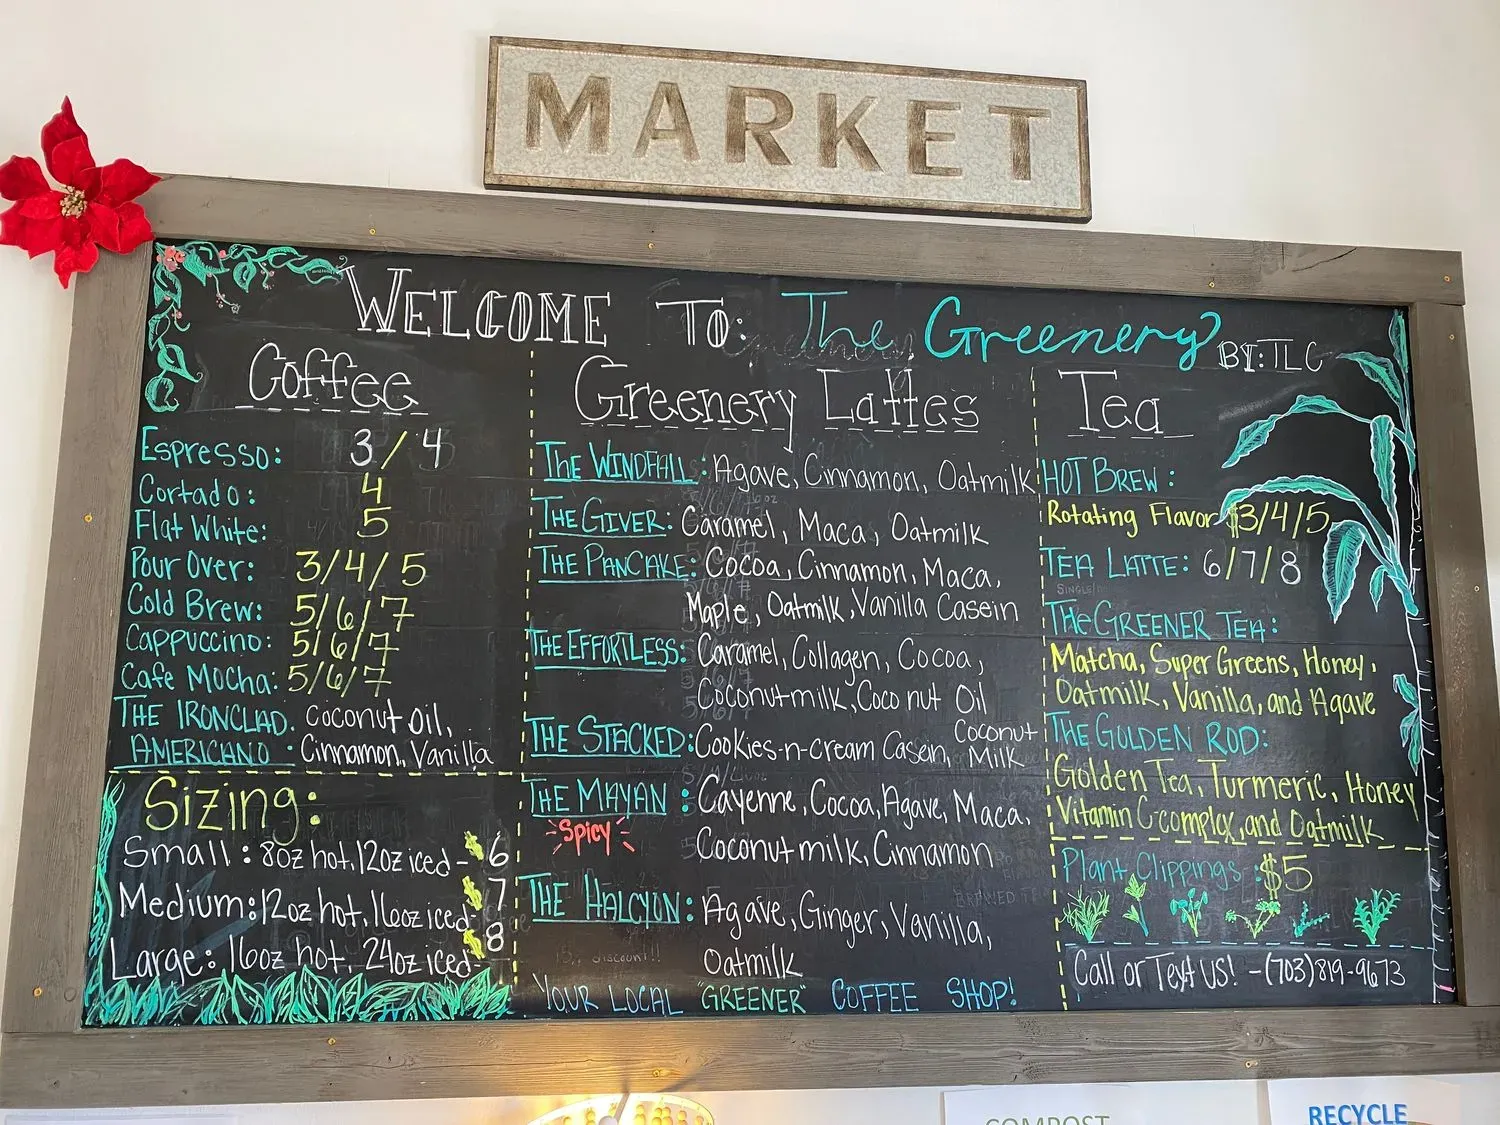 MARKET
WELCOME TO: The Greenery BY: TLC
Coffee
Espresso: 3/4
Cortado: 4
Flat White: 5
Pour Over: 3/4/5
Cold Brew: 5/6/7
Cappuccino: 5/6/7
Cafe Mocha: 5/6/7
THE IRONCLAD. Coconut oil,
AMERICANO: Cinnamon, Vanilla
Sizing:
Small: 8oz hot, 12oz iced - $6
Medium: 12oz hot, 16oz iced - $7
Large: 16oz hot, 24oz iced - $8
Greenery Lattes
THE WINDFALL: Agave, Cinnamon, Oatmilk
THE GIVER: Caramel, Maca, Oatmilk
THE PANCAKE: Cocoa, Cinnamon, Maca,
Maple, Oatmilk, Vanilla Casein
THE EFFORTLESS: Caramel, Collagen, Cocoa,
Coconutmilk, Coconut Oil
THE STACKED: Cookies-n-cream Casein, Coconut
Milk
THE MAYAN: Cayenne, Cocoa, Agave, Maca,
Spicy Coconutmilk, Cinnamon
THE HALCYON: Agave, Ginger, Vanilla,
Oatmilk
YOUR LOCAL "GREENER" COFFEE SHOP!
Tea
HOT BREW:
Rotating Flavor $3/4/5
TEA LATTE: 6/7/8
THE GREENER TEA:
Matcha, Super Greens, Honey,
Oatmilk, Vanilla, and Agave
THE GOLDEN ROD:
Golden Tea, Turmeric, Honey
Vitamin C-complex, and Oatmilk
Plant Clippings: $5
Call or Text US! - (703) 819-9673
COMPOST
RECYCLE